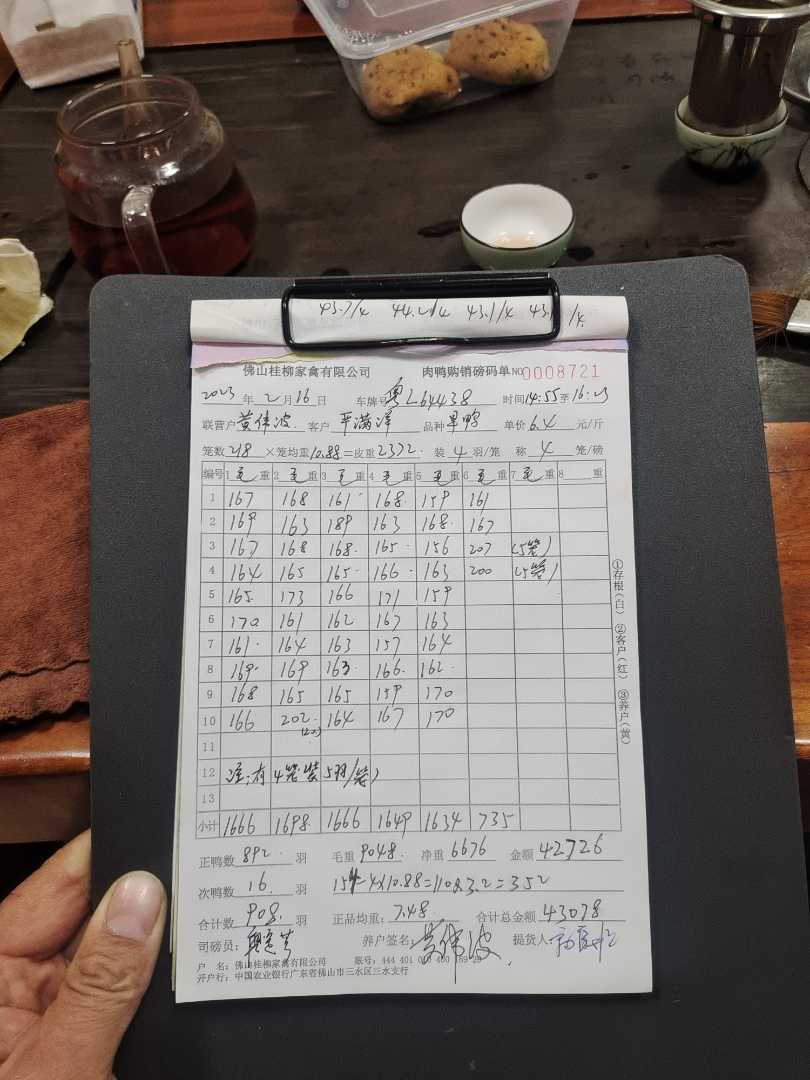 43.7/4 44.2/4 43.1/4 43. /4
佛山桂柳家禽有限公司 肉鸭购销磅码单 NO 0008721
2023年2月16日 车牌号粤L64438 时间14:55至16:23
联营户黄伟波 客户 品种 单价6.4元/斤
笼数218×笼均重10.88=皮重2372. 装4羽/笼 称4笼/磅
编号 1毛重 2毛重 3毛重 4毛重 5毛重 6毛重 7毛重 8 重
1 167 168 161 168 159 161
2 169 163 189 163 168 167
3 167 168 168 165 156 207 (5笼)
4 164 165 165 166 163 200 (5笼)
5 165 173 166 171 159
6 170 161 162 167 163
7 161 164 163 157 164
8 169 169 163 166 162
9 168 165 165 159 170
10 166 202 164 167 170
(5笼)
11
12 注:有4笼装5羽/笼)
13
小计 1666 1698 1666 1649 1634 735
正鸭数892羽 毛重9048. 净重6676 金额42726
次鸭数16.羽 154-4×10.88=110×3.2=352
合计数908.羽 正品均重:7.48. 合计总金额43078
司磅员: 养户签名:黄伟波 提货人:
户 名:佛山桂柳家禽有限公司 账号:444 401 0
开户行:中国农业银行广东省佛山市三水区三水支行
①存根(白) ②客户(红) ③养户(黄)